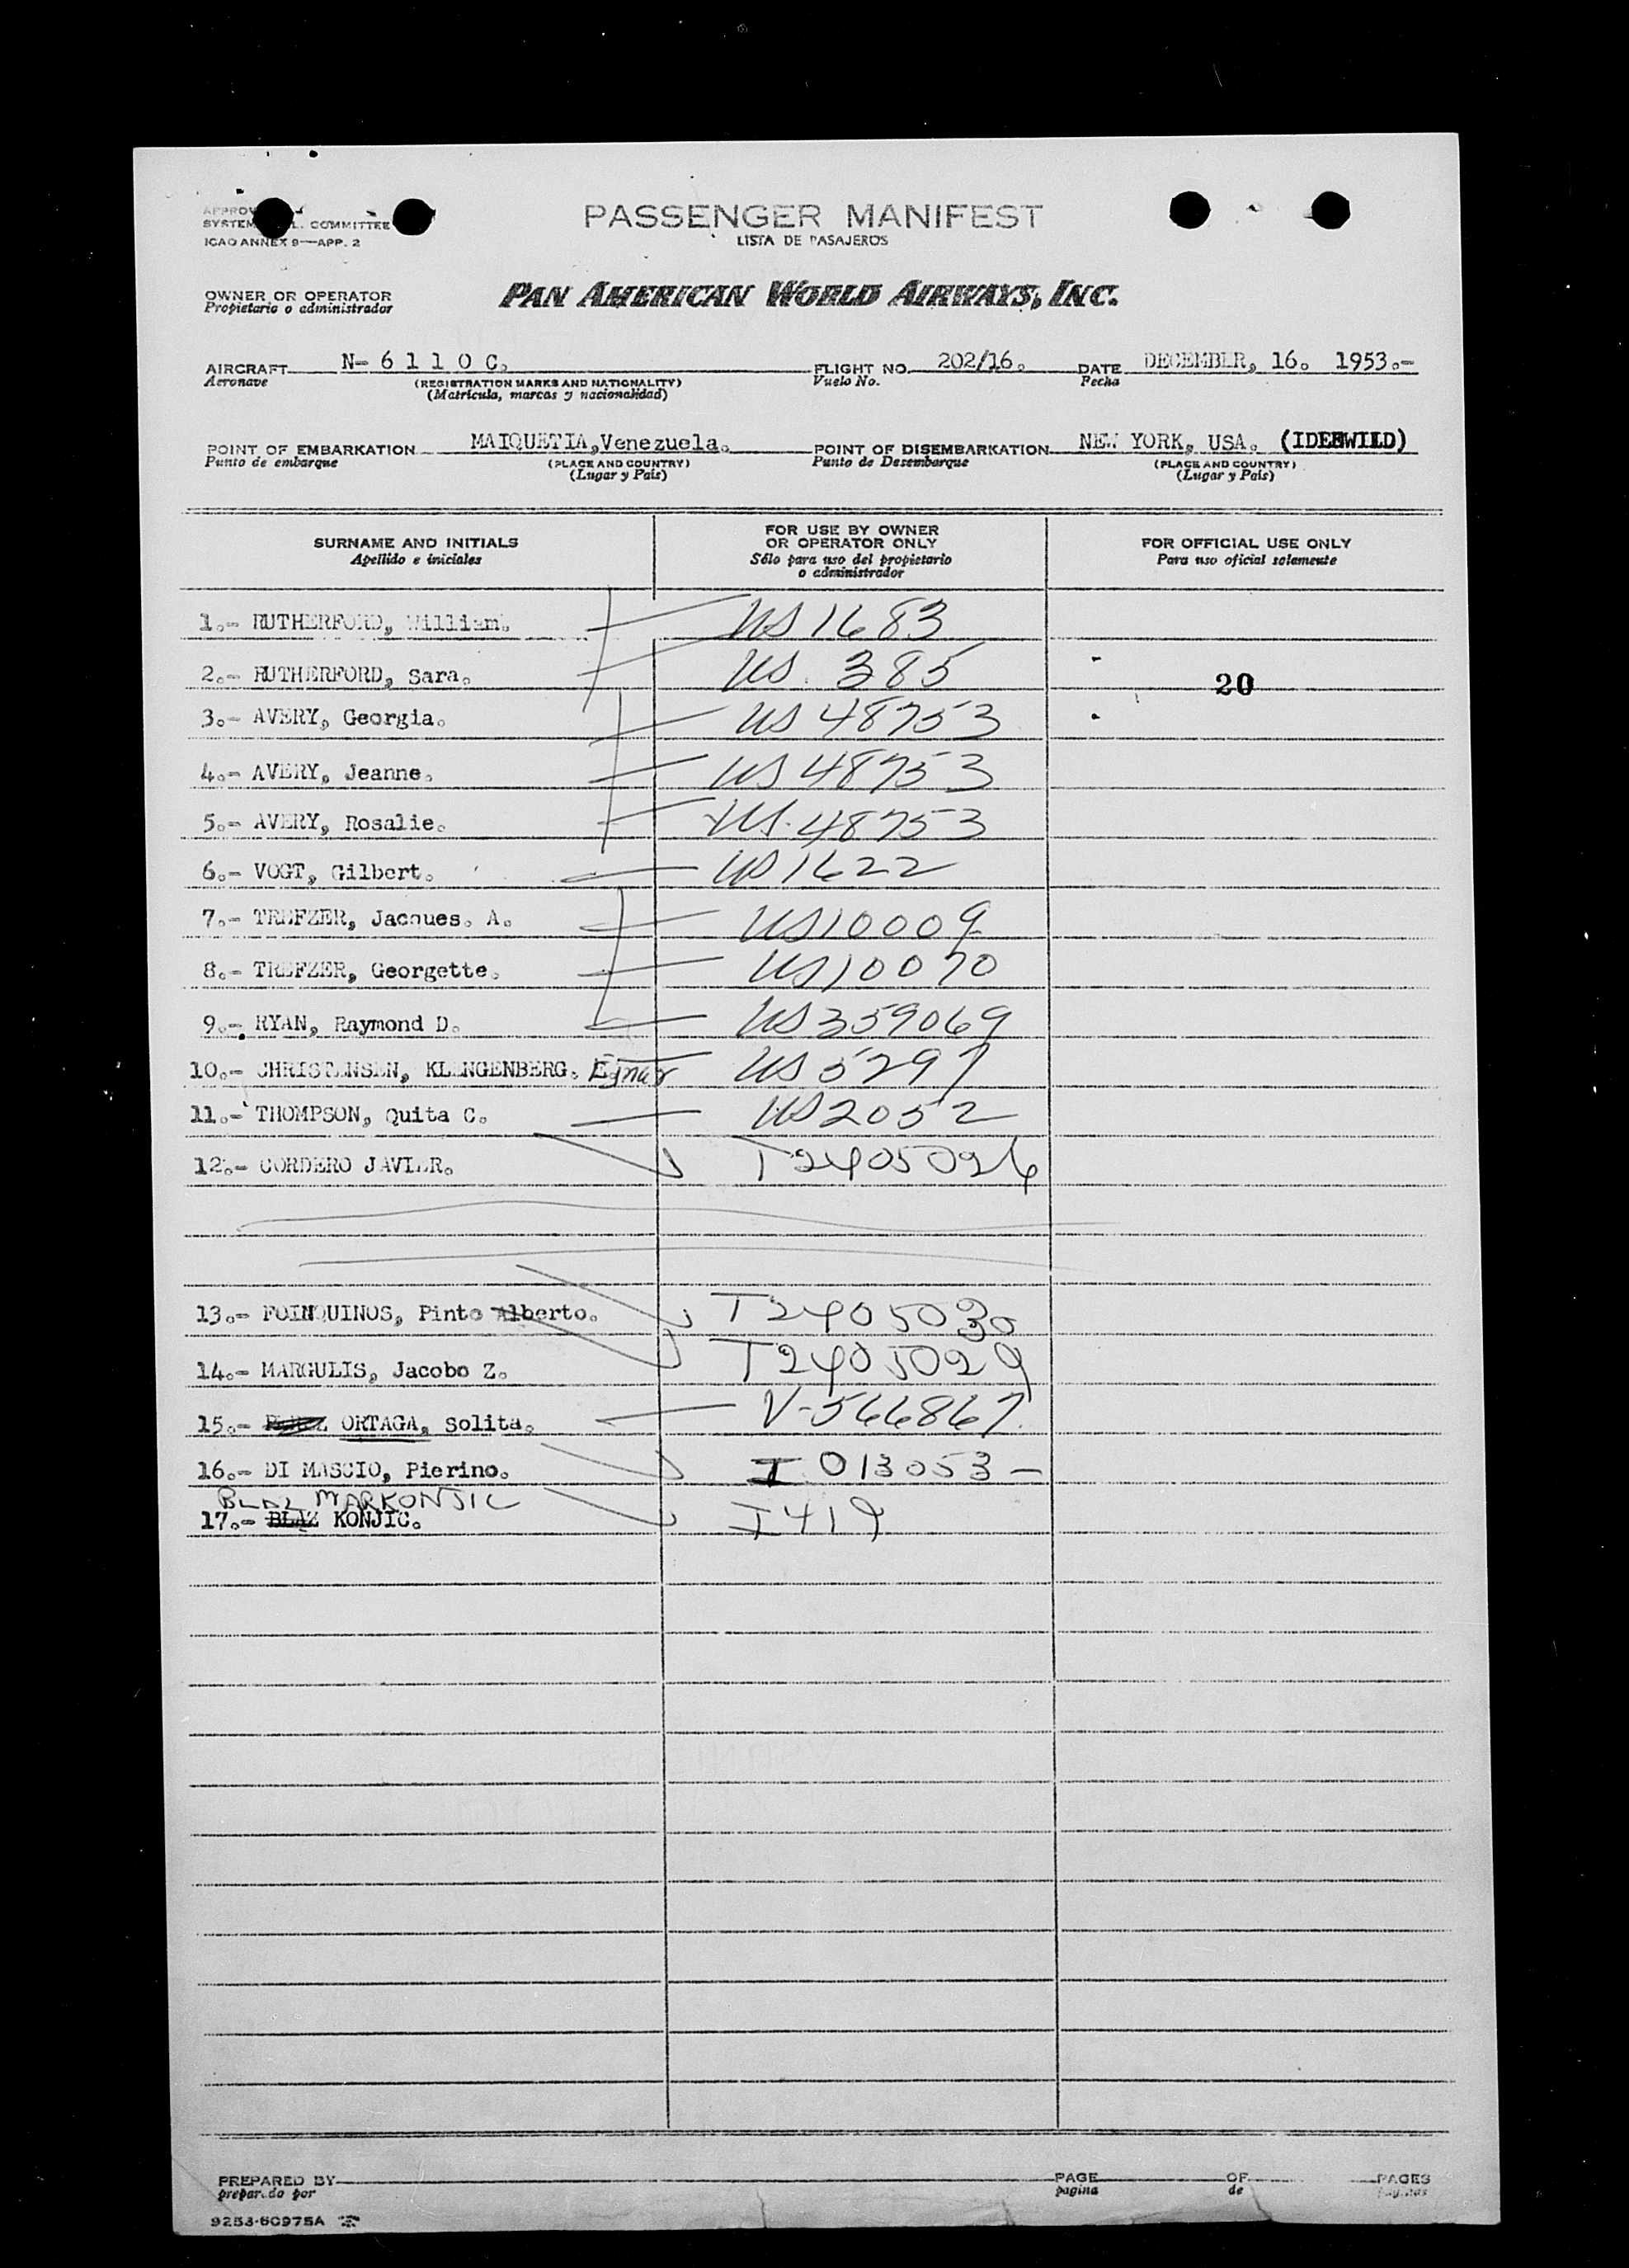 PASSENGER MANIFEST
LISTA DE PASAJEROS
SYSTEM COMMITTEE
ICAO ANNEX 9—APP. 2
OWNER OR OPERATOR PAN AMERICAN WORLD AIRWAYS, INC.
Propietario o administrador
AIRCRAFT N- 6 1 1 0 C. FLIGHT NO. 202/16. DATE DECEMBER, 16. 1953.-
Aeronave (REGISTRATION MARKS AND NATIONALITY) Vuelo No. Fecha
(Matrícula, marcas y nacionalidad)
POINT OF EMBARKATION MAIQUETIA,Venezuela. POINT OF DISEMBARKATION NEW YORK, USA. (IDEEWILD)
Punto de embarque (PLACE AND COUNTRY) Punto de Desembarque (PLACE AND COUNTRY)
(Lugar y País) (Lugar y País)
SURNAME AND INITIALS FOR USE BY OWNER OR OPERATOR ONLY FOR OFFICIAL USE ONLY
Apellido e iniciales Sólo para uso del propietario o administrador Para uso oficial solamente
1.- RUTHERFORD, William. US 1683
2.- RUTHERFORD, Sara. US. 385 20
3.- AVERY, Georgia. US 48753
4.- AVERY, Jeanne. US 48753
5.- AVERY, Rosalie. US. 48753
6.- VOGT, Gilbert. US 1622
7.- TREFZER, Jacques. A. US 10009
8.- TREFZER, Georgette. US 10070
9.- RYAN, Raymond D. US 359069
10.- CHRISTENSEN, KLENGENBERG. Ejnar US 5297
11.- THOMPSON, Quita C. US 2052
12.- CORDERO JAVIER. T2405026
13.- FOINQUINOS, Pinto Alberto. T2405030
14.- MARGULIS, Jacobo Z. T2405029
15.- ORTAGA, Solita. V-566867.
16.- DI MASCIO, Pierino. I 013053 —
BLAZ MARKONJIC
17.- BLAZ KONJIC. I 419
PREPARED BY PAGE OF PAGES
preparado por pagina de paginas
9253-60975A